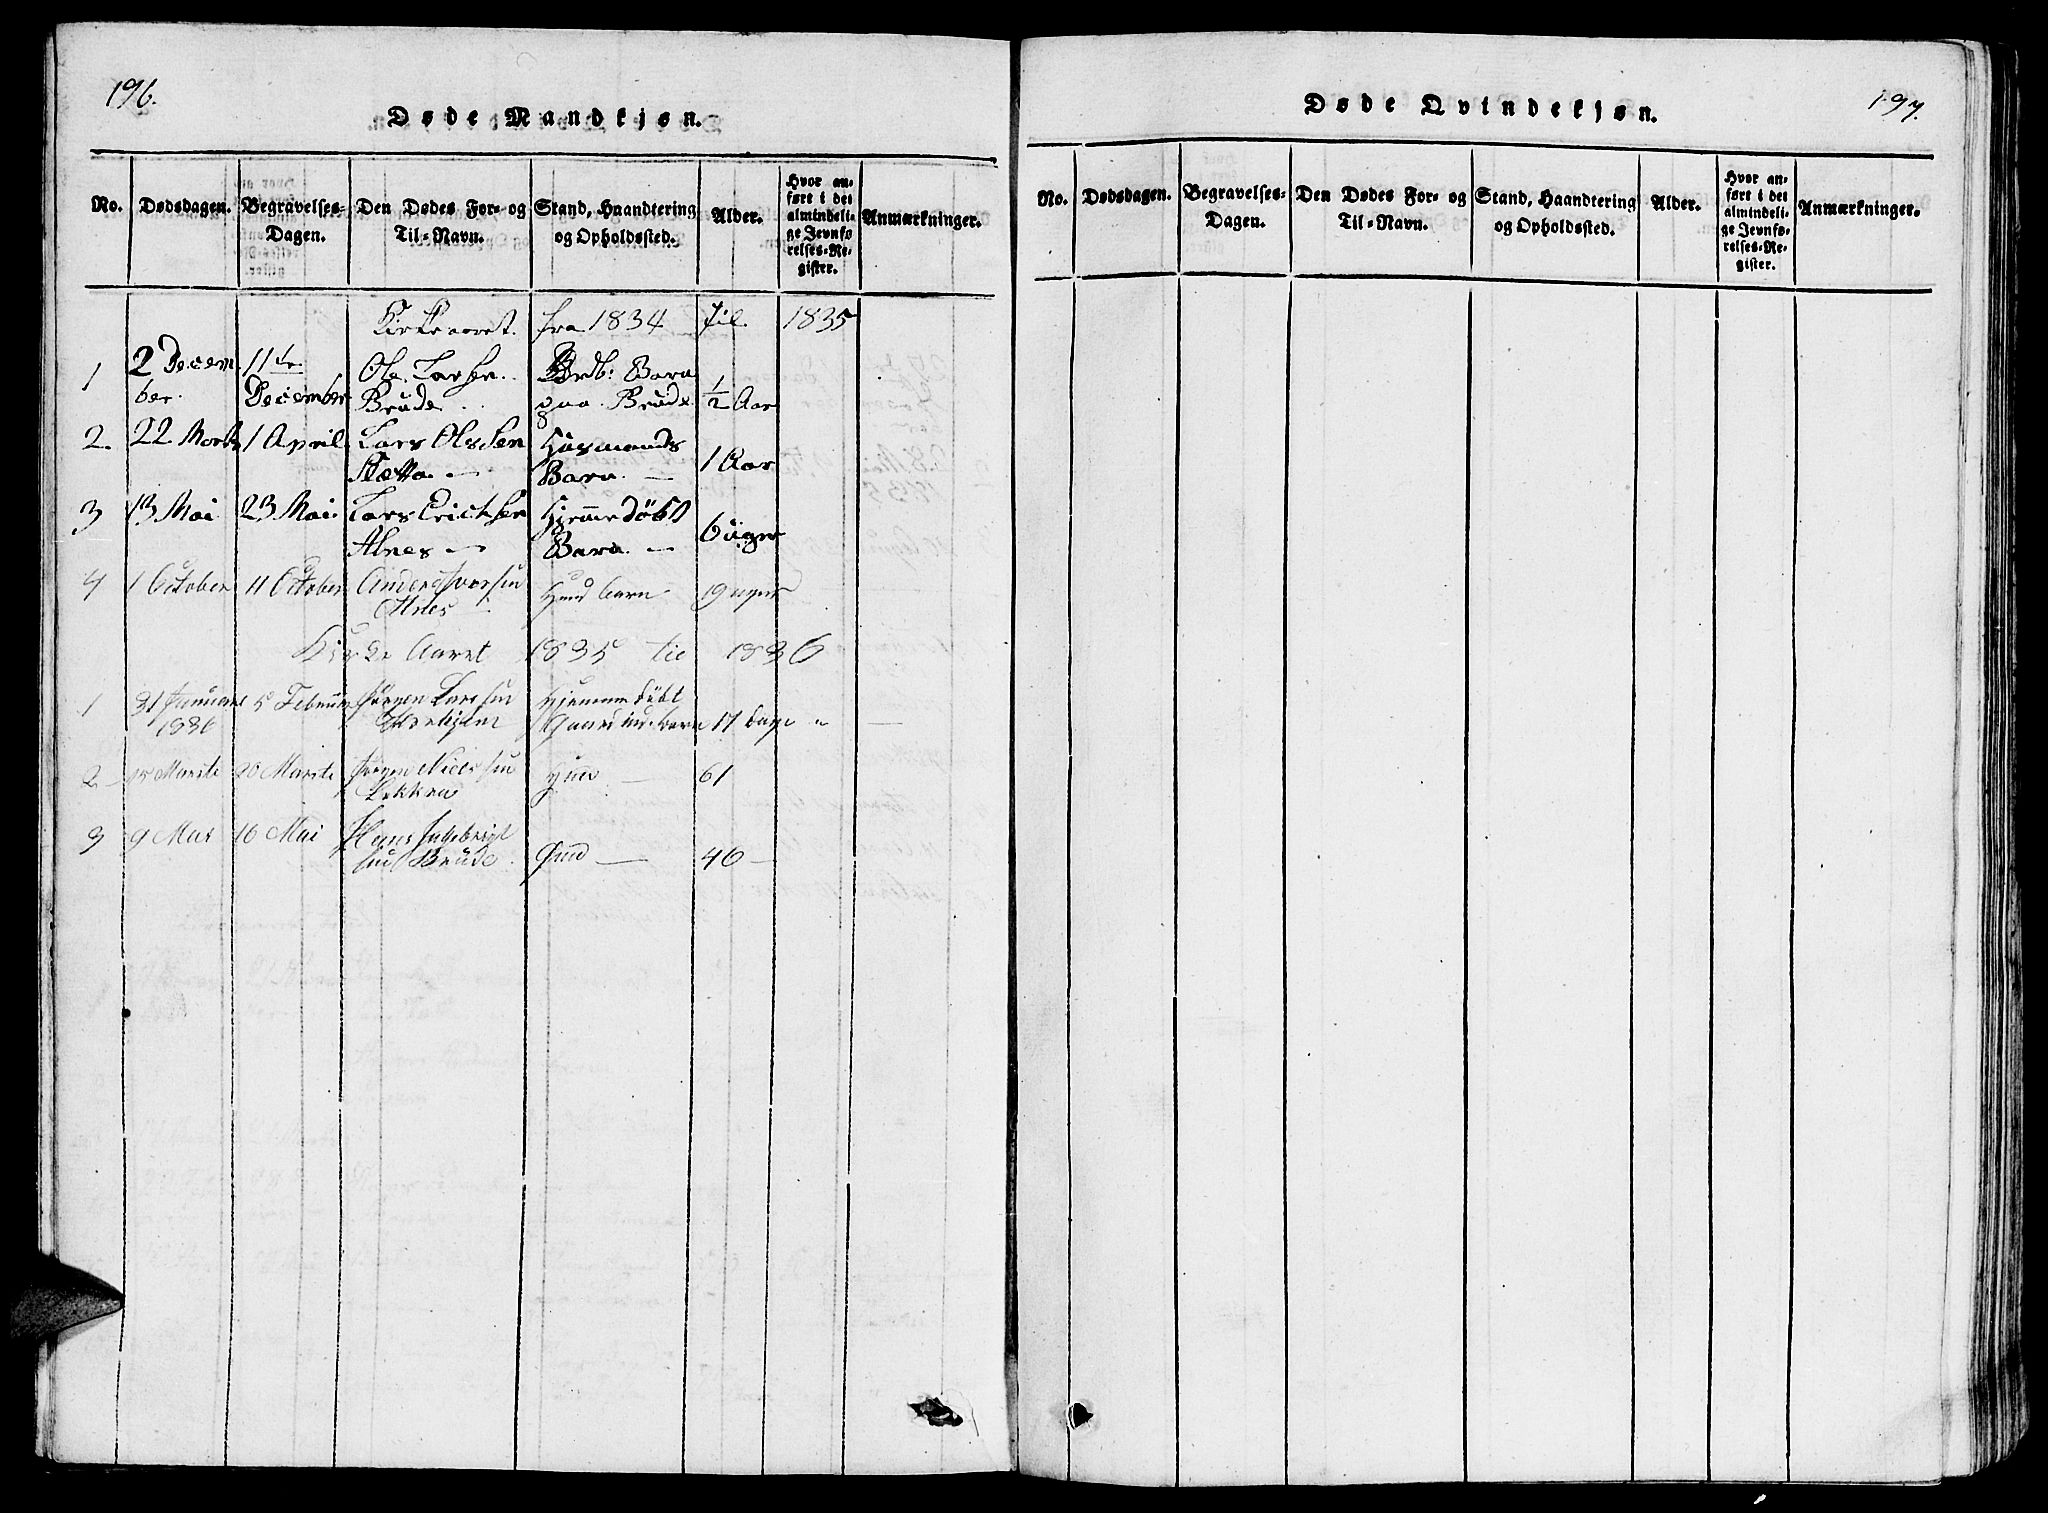 196.
Døde Mandkjøn.
No. Dødsdagen. Begravelses-Dagen. Den Dødes For- og Til-Navn. Stand, Haandtering og Opholdssted. Alder. Hvor anført i det almindelige Jevnførelses-Register. Anmærkninger.
Kirkeaaret fra 1834 til 1835
1 2 Decem 11te Ole Larsen Barn 1/2 Aar
ber. December Brude paa Brude
2. 22 Marts 1 April Lars Olsen Huusmands 1 Aar
Barn —
3 13 Mai 23 Mai Lars Erichsen Hjemmedöbt 6 uger
Alnes — Barn —
4 1 October 11 October Anders Iversen Huusd barn 19 uger
Alnes
Kirke Aaret 1835 til 1836
1 31 Januari 5 Februar Jörgen Larssen Hjemmedöbt
1836 Gaardmd barn 17 dage " —
2 15 Marts 20 Marts Jørgen Nielssen — 61
Lekkna
3 9 Mai 16 Mai Hans Ingebrigt
sen Brude — 46 —
197.
Døde Qvindekjøn.
No. Dødsdagen. Begravelses-Dagen. Den Dødes For- og Til-Navn. Stand, Haandtering og Opholdssted. Alder. Hvor anført i det almindelige Jevnførelses-Register. Anmærkninger.